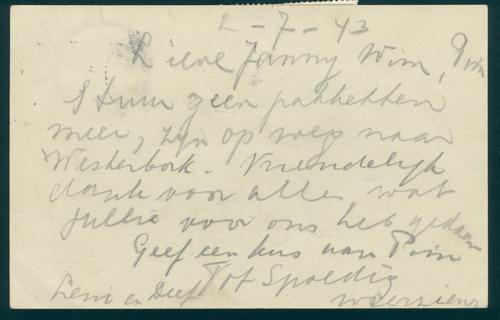 2-7-43
Lieve Janny Wim, Pim
Stuur geen pakketten
meer, zijn op weg naar
Westerbork. Vriendelijk
dank voor alles wat
jullie voor ons heb gedaan
Geef een kus aan Pim
Tot Spoedig
Leni en Deef
weerziens